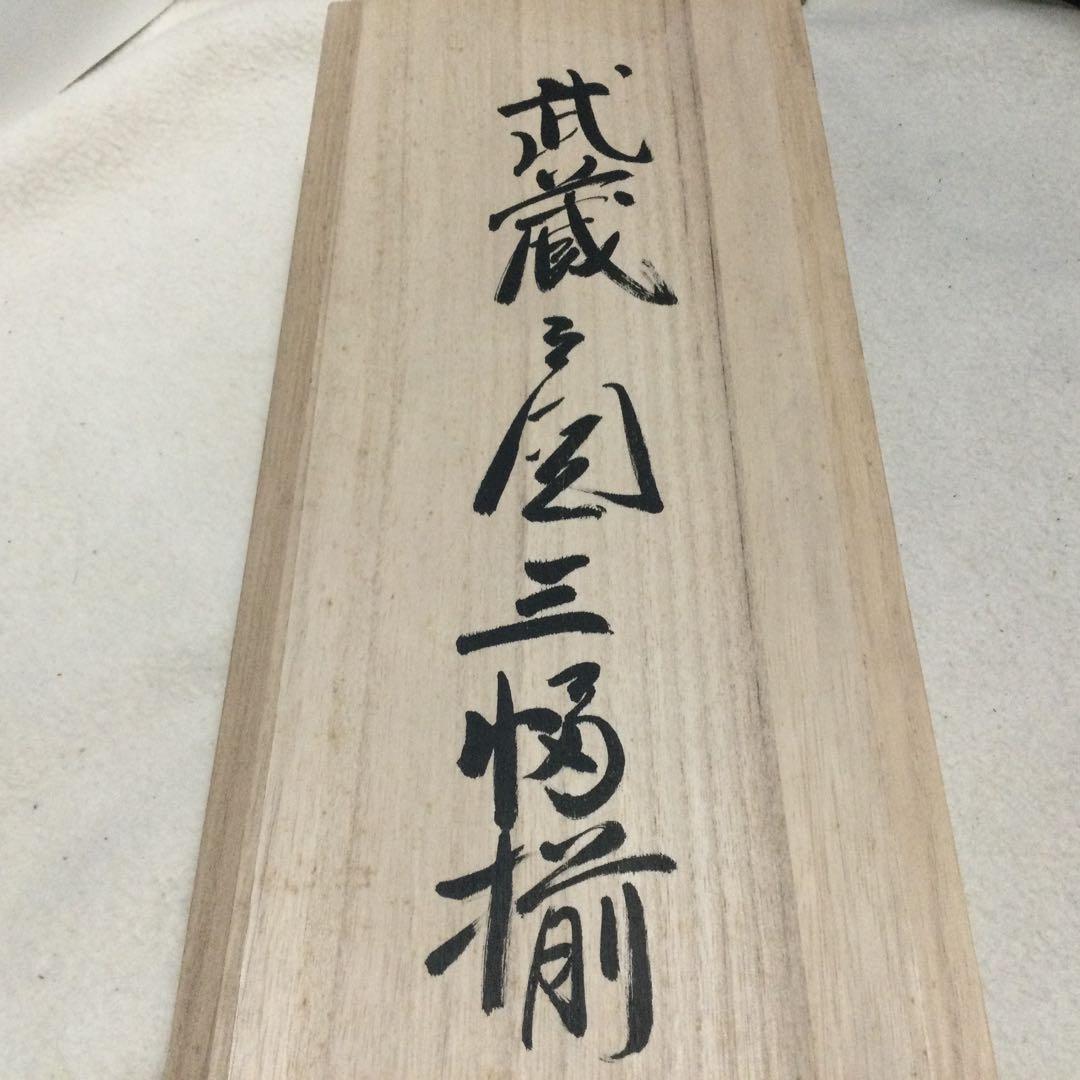 武蔵之図三幅揃